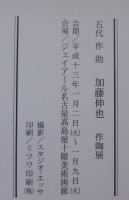 五代 作助 加藤伸也 作陶展
会期／平成十三年一月二日(火)〜一月九日(火)
会場／ジェイアール名古屋髙島屋十階美術画廊
撮影／スタジオ・エッサ
印刷／ミツワ印刷(株)